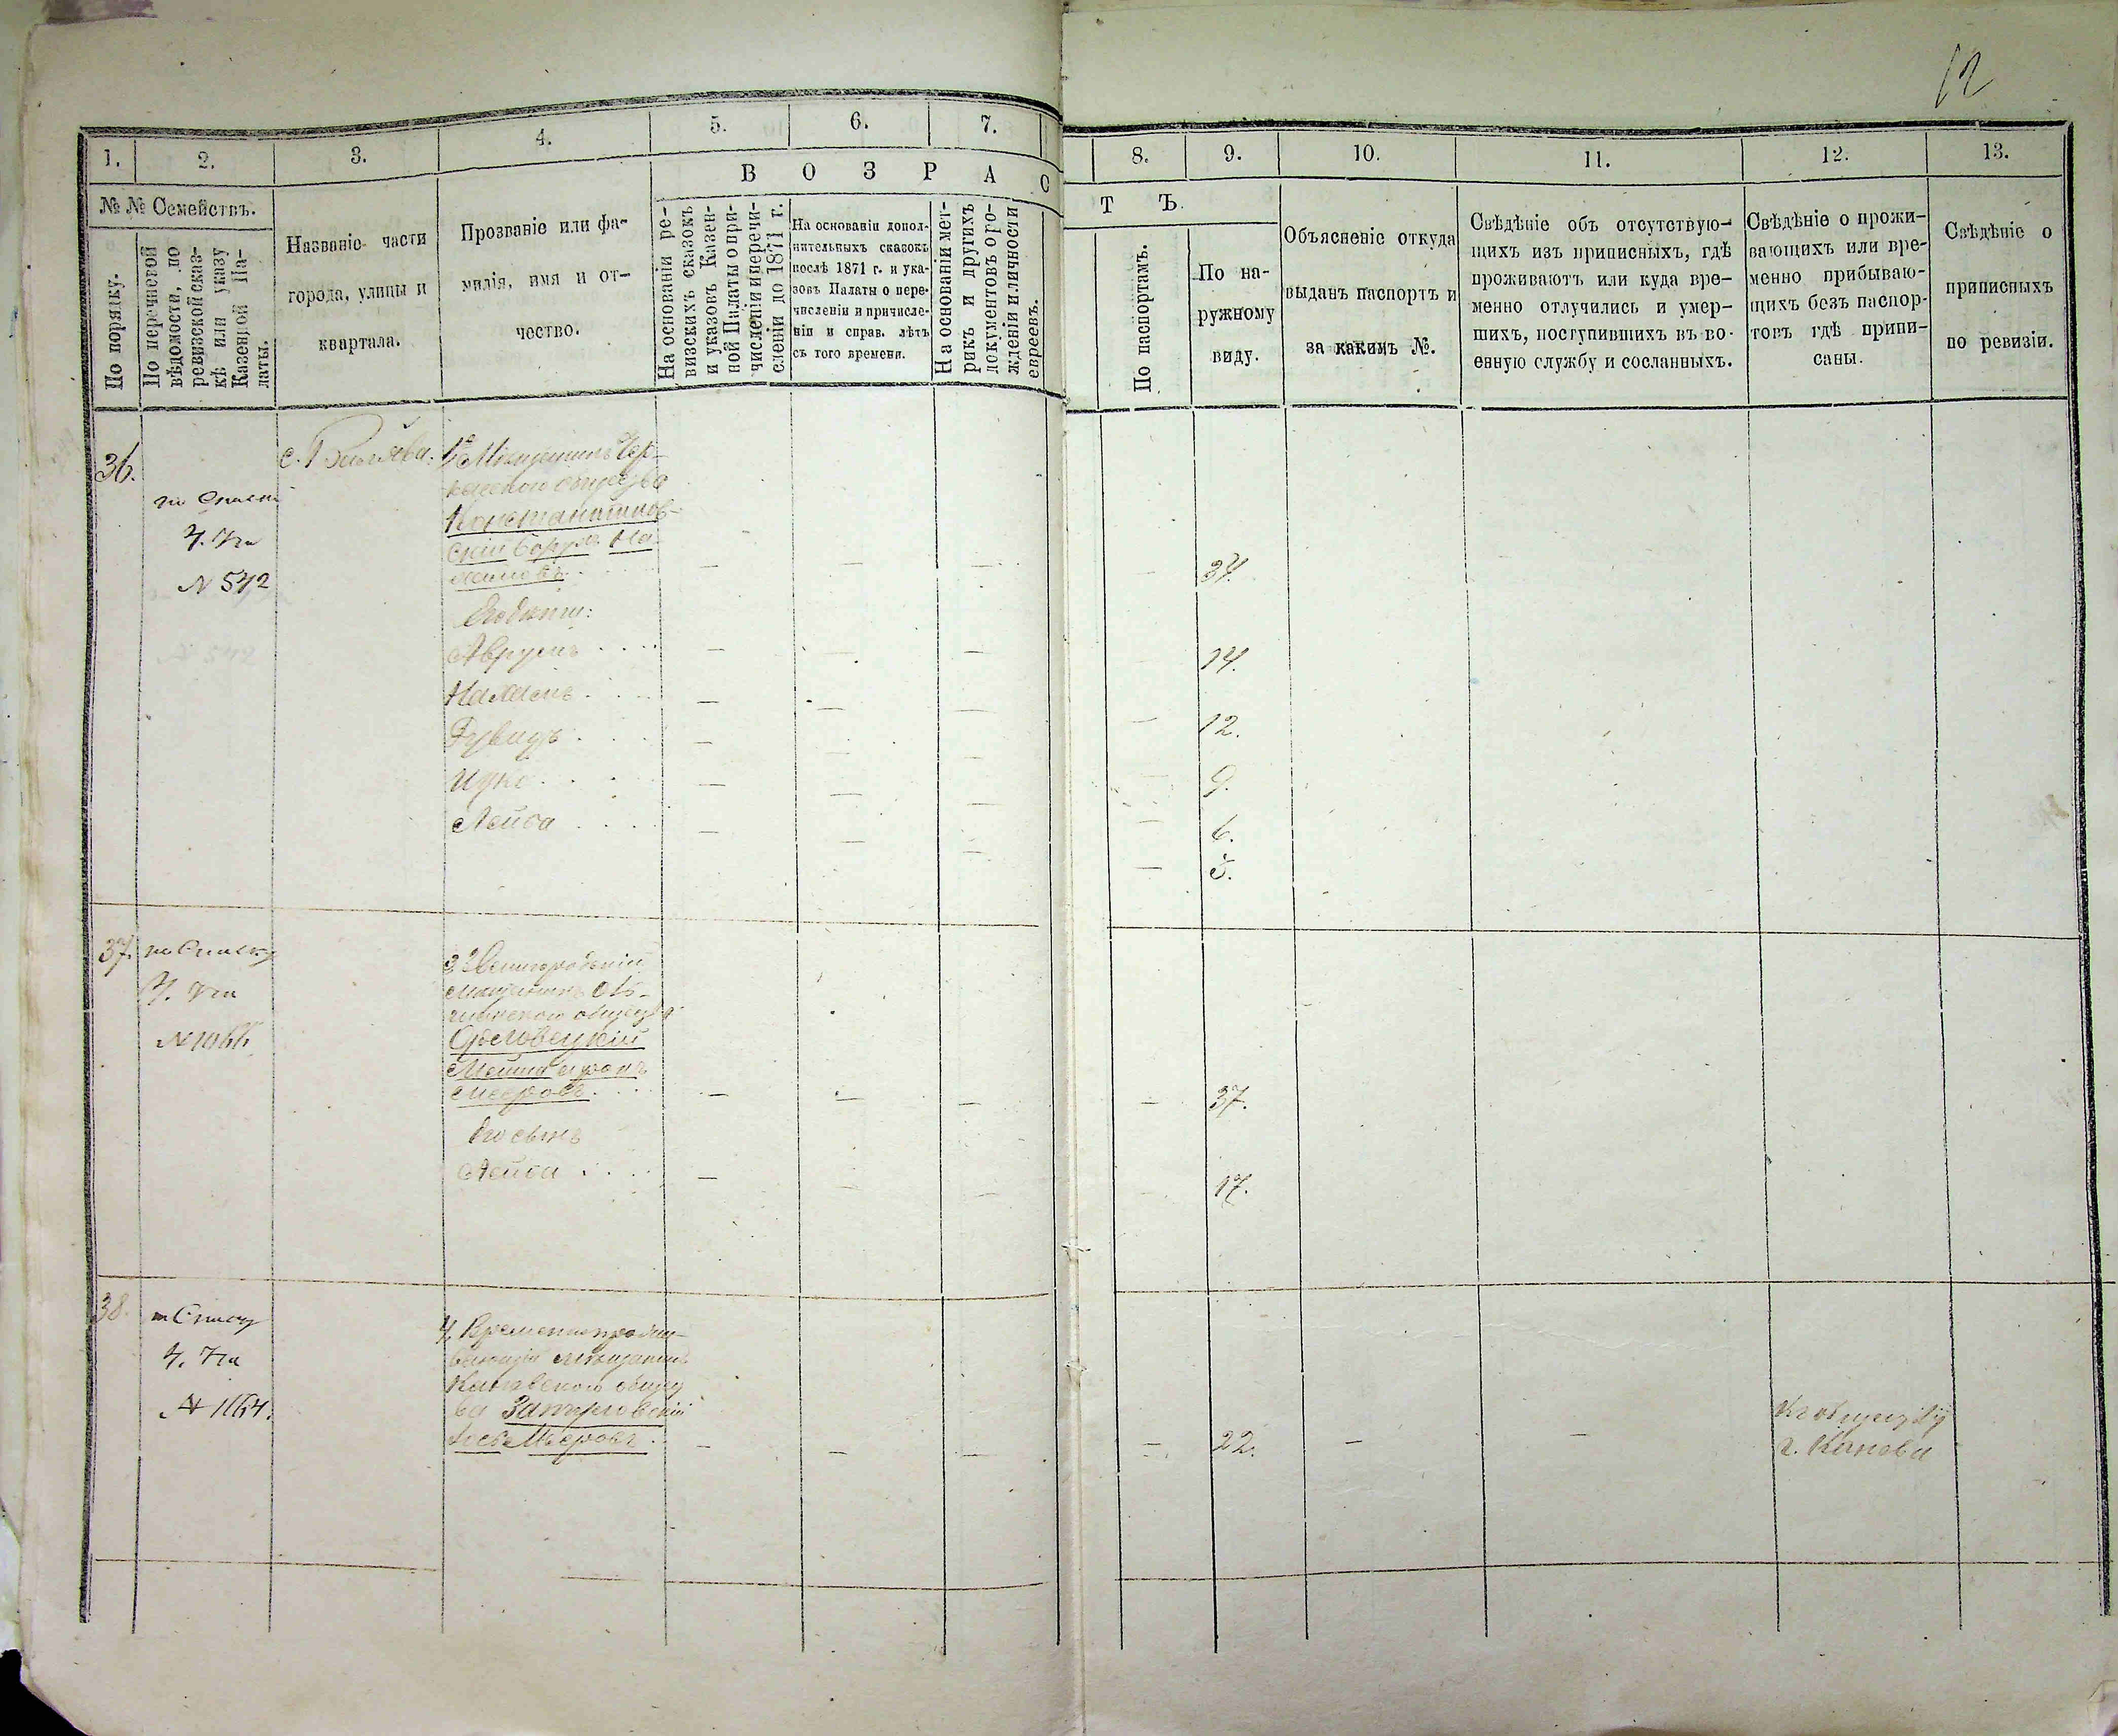 12
1. 2. 3. 4. 5. 6. 7. 8. 9. 10. 11. 12. 13.
№№ Семействъ.
По порядку.
По перечневой
вѣдомости, по
ревизской сказ-
кѣ или указу
Казенной Па-
латы.
Названіе части
города, улицы и
квартала.
Прозваніе или фа-
милія, имя и от-
чество.
В О З Р А С Т Ъ.
На основаніи ре-
визскихъ сказокъ
и указовъ Казен-
ной Палаты о при-
численіи и перечи-
сленіи до 1871 г.
На основаніи допол-
нительныхъ сказокъ
послѣ 1871 г. и ука-
зовъ Палаты о пере-
численіи и причисле-
ніи и справ. лѣтъ
съ того времени.
На основаніи мет-
рикъ и другихъ
документовъ о ро-
жденіи и личности
евреевъ.
По паспортамъ.
По на-
ружному
виду.
Объясненіе откуда
выданъ паспортъ и
за какимъ №.
Свѣдѣніе объ отсутствую-
щихъ изъ приписныхъ, гдѣ
проживаютъ или куда вре-
менно отлучились и умер-
шихъ, поступившихъ въ во-
енную службу и сосланныхъ.
Свѣдѣніе о прожи-
вающихъ или вре-
менно прибываю-
щихъ безъ паспор-
товъ гдѣ припи-
саны.
Свѣдѣніе о
приписныхъ
по ревизіи.
36.
по
N 542
с.
Мѣщанинъ Чер-
каскаго общества
Константинов-
скій Борухъ На-
химовъ 34.
Его дѣти:
Аврумъ 14.
Нахимъ 12.
Дувидъ 9.
Ицко 6.
Лейба 5.
37. по Списку
N 1066
Звенигородскій
мѣщанинъ
общества
Мошко
37.
Его сынъ
Лейба 17.
38. по Списку
N 1164.
4, Временнопрожи-
вающій мѣщанинъ
Каневскаго общес
ва
Мееровъ — — — — 22. — —
Къ обществу
г. Канева